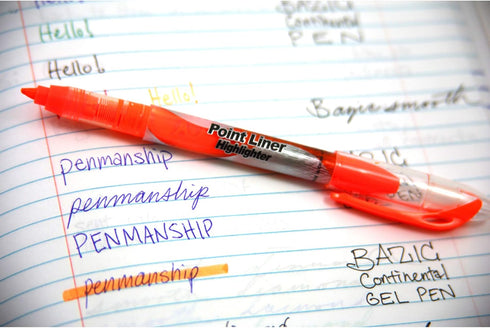 BAZIC
Hello!
Continental
PEN
Hello!
Hello!
Bazic smooth
Point Liner
Highlighter
penmanship
penmanship
PENMANSHIP
penmanship
BAZIC
Continental
GEL PEN